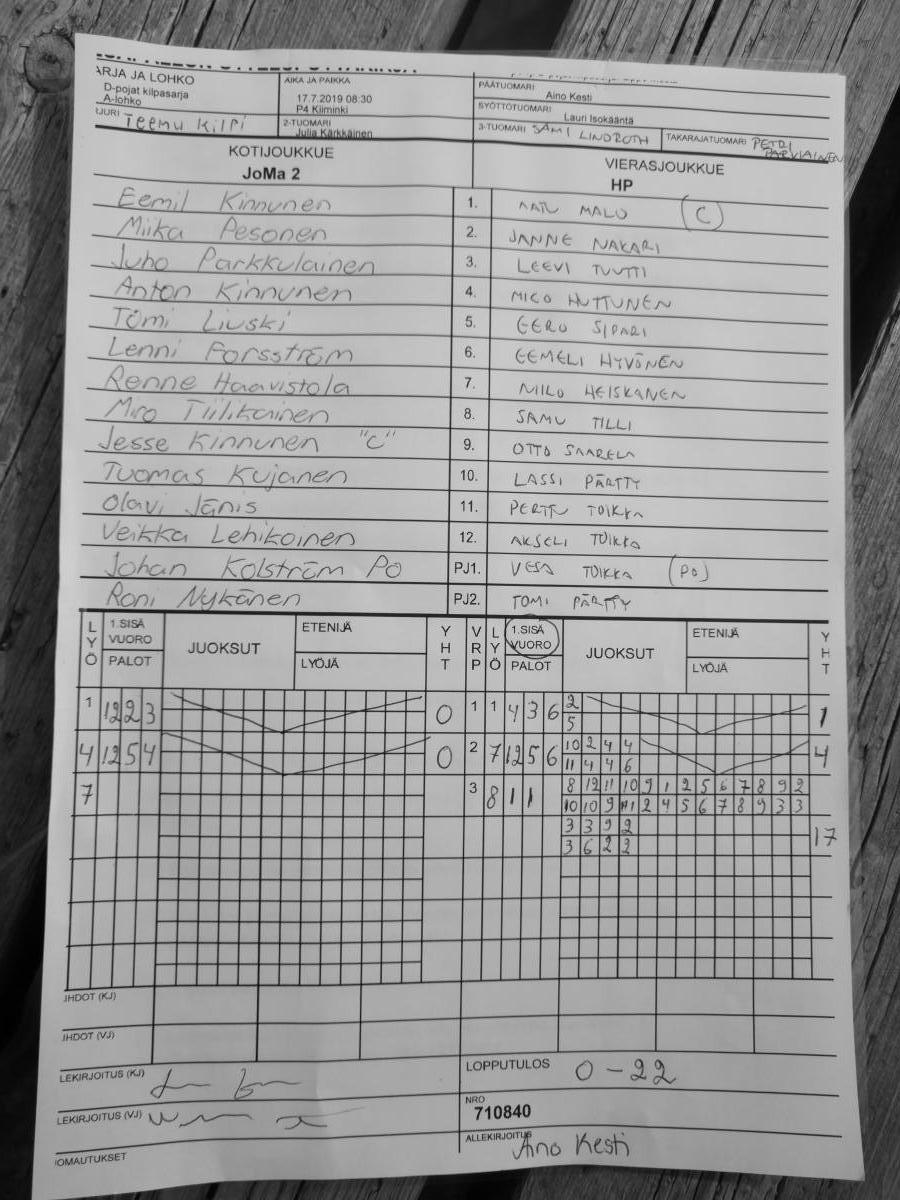 ARJA JA LOHKO
D-pojat kilpasarja
A-lohko
JURI Teemu Kilpi
AIKA JA PAIKKA
17.7.2019 08:30
P4 Kiiminki
2-TUOMARI
Julia Kärkkäinen
PÄÄTUOMARI
Aino Kesti
SYÖTTÖTUOMARI
Lauri Isokääntä
3-TUOMARI SAMI LINDROTH
TAKARAJATUOMARI PETRI PARVIAINEN
KOTIJOUKKUE VIERASJOUKKUE
JoMa 2 HP
Eemil Kinnunen 1. AATU MALO (C)
Miika Pesonen 2. JANNE NAKARI
Juho Parkkulainen 3. LEEVI TUUTTI
Anton Kinnunen 4. MICO HUTTUNEN
Tomi Liuski 5. EERO SIPARI
Lenni Forsström 6. EEMELI HYVÖNEN
Renne Haavistola 7. MILO HEISKANEN
Miro Tiilikainen 8. SAMU TILLI
Jesse Kinnunen "C" 9. OTTO SAARELA
Tuomas Kujanen 10. LASSI PÄRTTY
Olavi Jänis 11. PERTTU TOIKKA
Veikka Lehikoinen 12. AKSELI TOIKKA
Johan Kolström PO PJ1. VESA TOIKKA (PO)
Roni Nykänen PJ2. TOMI PÄRTTY
LYÖ 1.SISÄ VUORO PALOT JUOKSUT ETENIJÄ LYÖJÄ YHT VRP LYÖ 1.SISÄ VUORO PALOT JUOKSUT ETENIJÄ LYÖJÄ YHT
1 12 2 3 0 1 1 4 3 6 2 1
5
4 12 5 4 0 2 7 12 5 6 10 2 4 4 4
11 4 4 6
7 3 8 1 1 8 12 11 10 9 1 2 5 6 7 8 9 2
10 10 9 11 1 2 4 5 6 7 8 9 3 3
3 3 9 2 17
3 6 2 2
JHDOT (KJ)
JHDOT (VJ)
LEKIRJOITUS (KJ)
LOPPUTULOS 0 - 22
LEKIRJOITUS (VJ)
NRO
710840
ALLEKIRJOITUS Aino Kesti
OMAUTUKSET